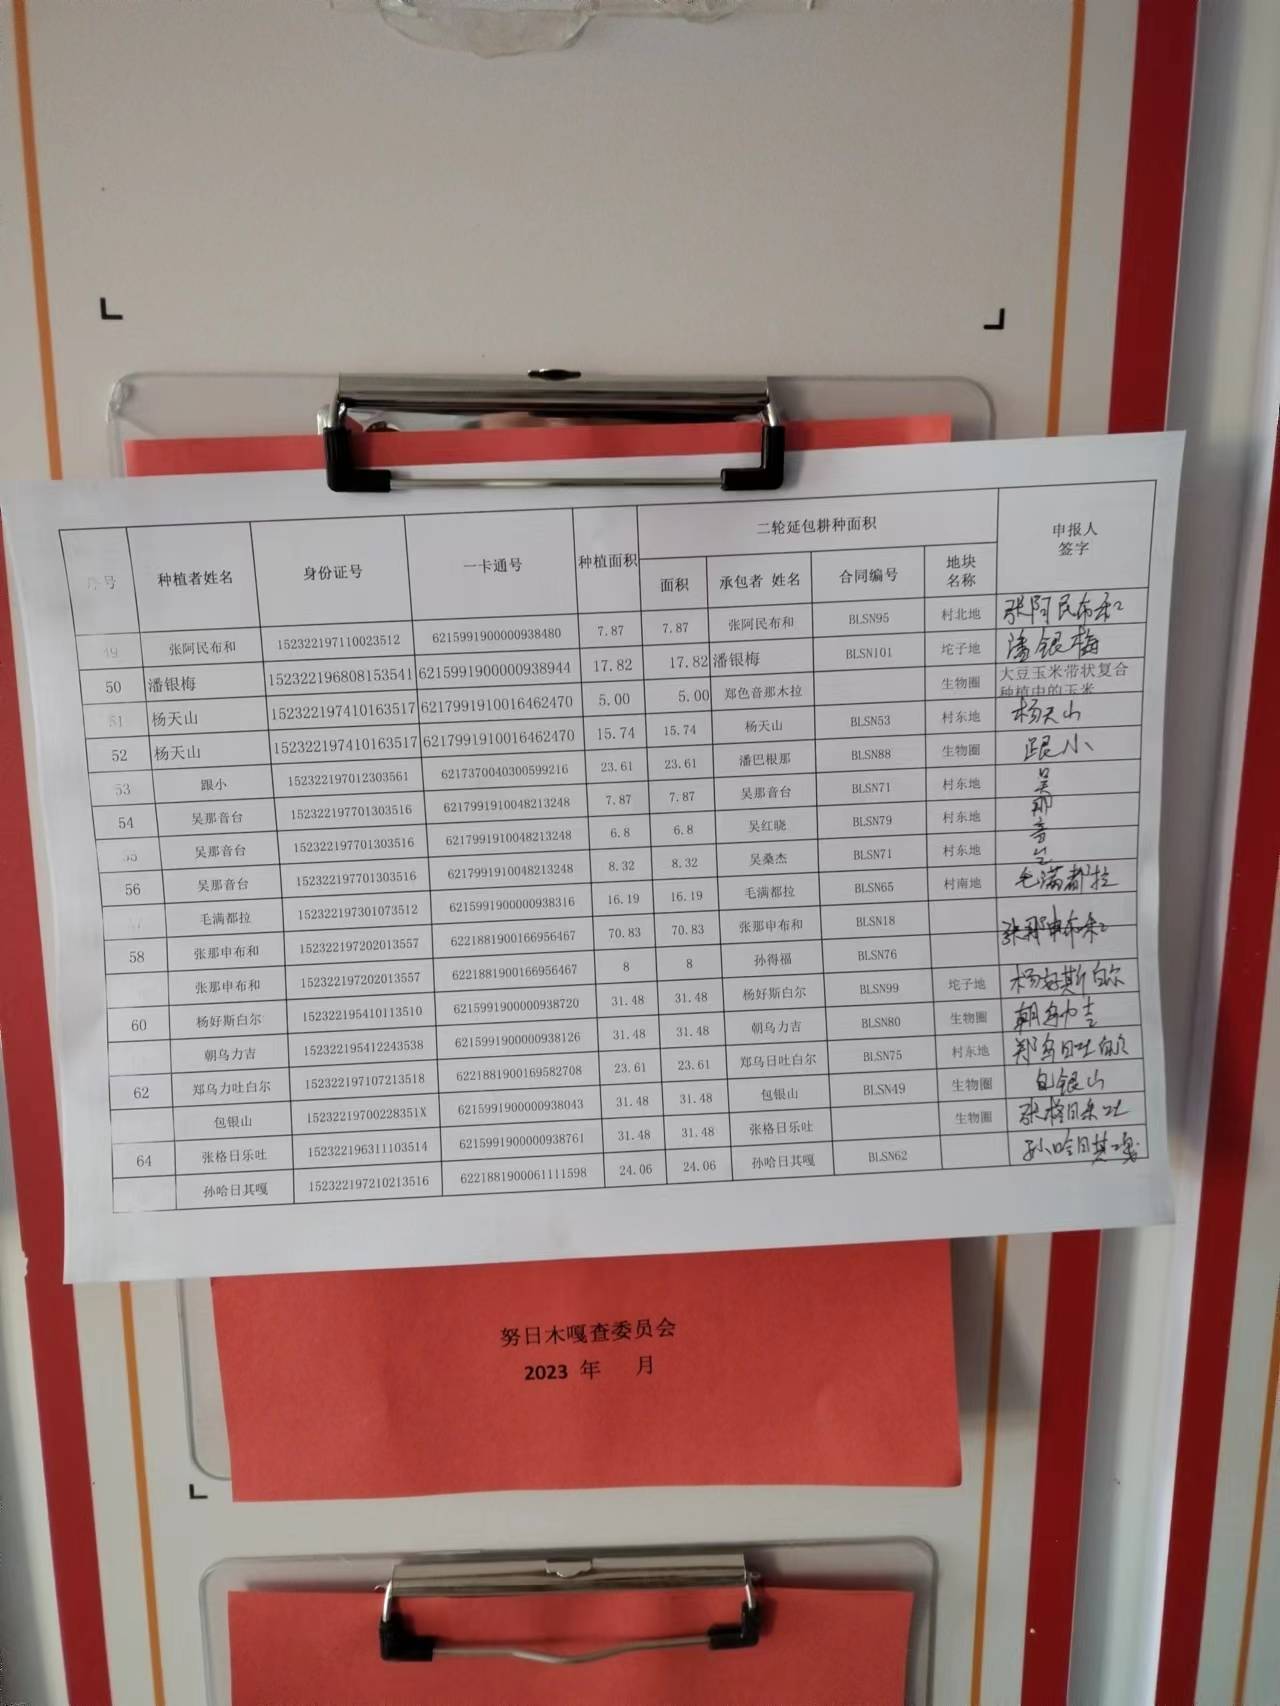 序号 种植者姓名 身份证号 一卡通号 种植面积 二轮延包耕种面积 申报人签字
面积 承包者 姓名 合同编号 地块名称
49 张阿民布和 152322197110023512 6215991900000938480 7.87 7.87 张阿民布和 BLSN95 村北地 张阿民布和
50 潘银梅 152322196808153541 6215991900000938944 17.82 17.82 潘银梅 BLSN101 坨子地 潘银梅
51 杨天山 152322197410163517 6217991910016462470 5.00 5.00 郑色音那木拉 生物圈 大豆玉米带状复合种植中的玉米
52 杨天山 152322197410163517 6217991910016462470 15.74 15.74 杨天山 BLSN53 村东地 杨天山
53 跟小 152322197012303561 6217370040300599216 23.61 23.61 潘巴根那 BLSN88 生物圈 跟小
54 吴那音台 152322197701303516 6217991910048213248 7.87 7.87 吴那音台 BLSN71 村东地 吴那音台
55 吴那音台 152322197701303516 6217991910048213248 6.8 6.8 吴红晓 BLSN79 村东地
56 吴那音台 152322197701303516 6217991910048213248 8.32 8.32 吴桑杰 BLSN71 村东地
毛满都拉 152322197301073512 6215991900000938316 16.19 16.19 毛满都拉 BLSN65 村南地 毛满都拉
58 张那申布和 152322197202013557 6221881900166956467 70.83 70.83 张那申布和 BLSN18 张那申布和
张那申布和 152322197202013557 6221881900166956467 8 8 孙得福 BLSN76
60 杨好斯白尔 152322195410113510 6215991900000938720 31.48 31.48 杨好斯白尔 BLSN99 坨子地 杨好斯白尔
朝乌力吉 152322195412243538 6215991900000938126 31.48 31.48 朝乌力吉 BLSN80 生物圈 朝乌力吉
62 郑乌力吐白尔 152322197107213518 6221881900169582708 23.61 23.61 郑乌日吐白尔 BLSN75 村东地 郑乌日吐白尔
包银山 15232219700228351X 6215991900000938043 31.48 31.48 包银山 BLSN49 生物圈 包银山
64 张格日乐吐 152322196311103514 6215991900000938761 31.48 31.48 张格日乐吐 生物圈 张格日乐吐
孙哈日其嘎 152322197210213516 6221881900061111598 24.06 24.06 孙哈日其嘎 BLSN62 孙哈日其嘎
努日木嘎查委员会
2023 年 月